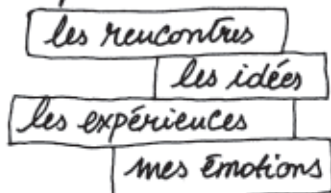 les rencontres
les idées
les expériences
mes émotions